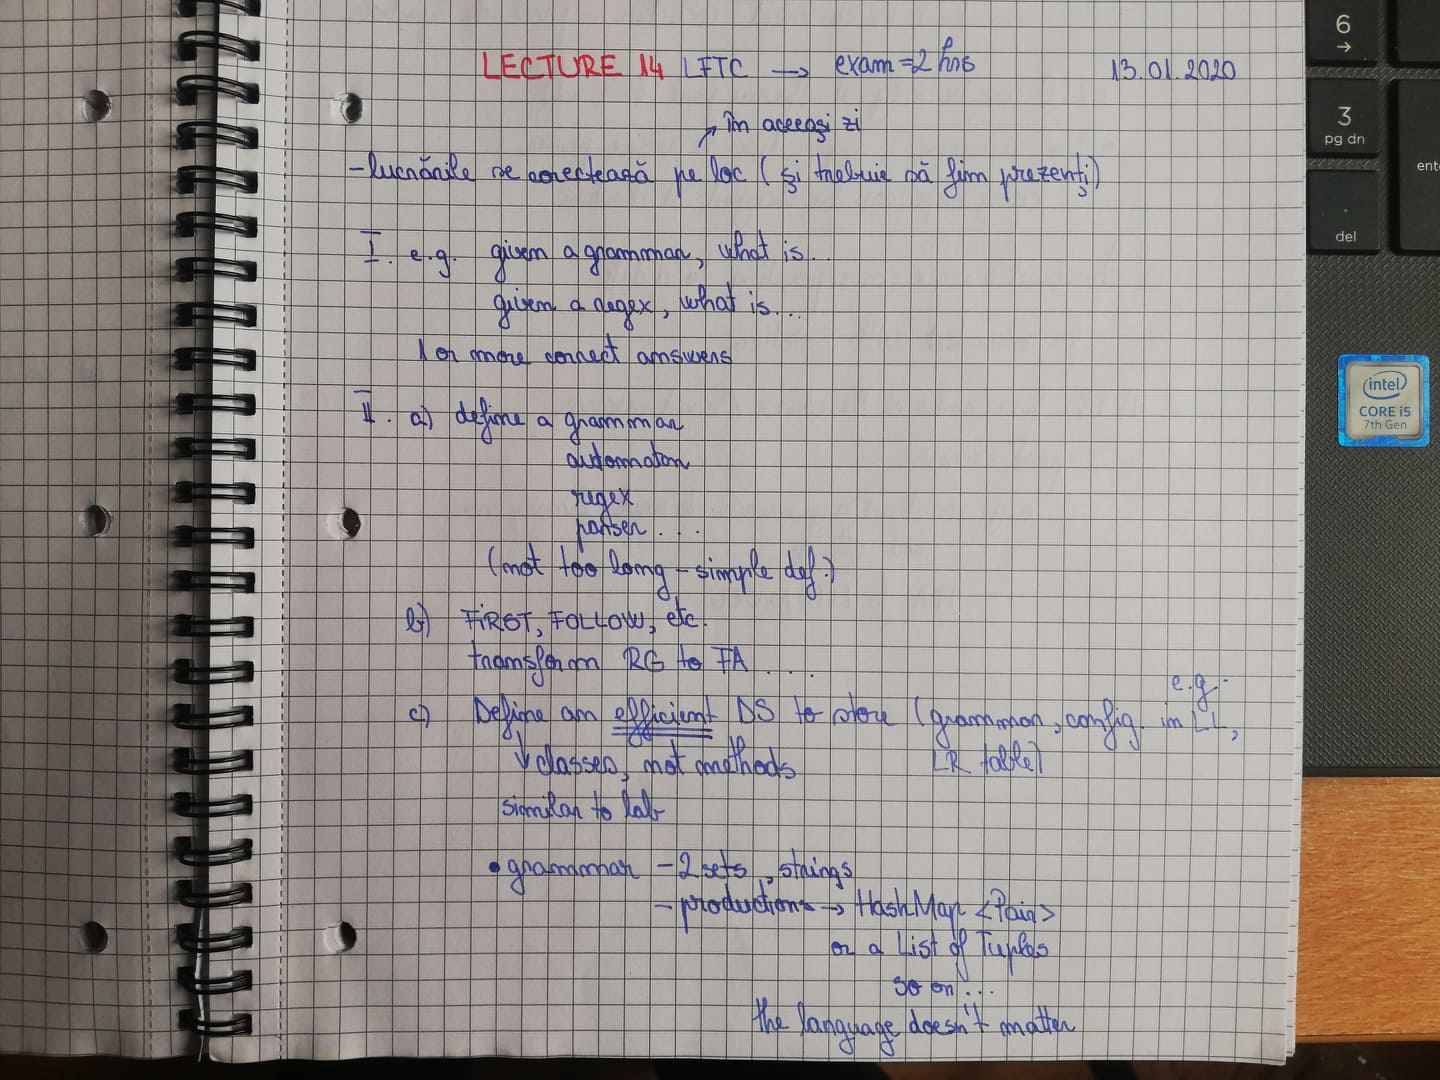 LECTURE 14 LFTC → exam = 2 hrs 13.01.2020
în aceeași zi
- lucrările se corectează pe loc (și trebuie să fim prezenți)
I. e.g. given a grammar, what is...
given a regex, what is...
1 or more correct answers
II. a) define a grammar
automaton
regex
parser....
(not too long - simple def.)
b) FIRST, FOLLOW, etc.
transform RG to FA....
e.g.
c) Define an efficient DS to store (grammar, config. in LL,
↓ classes, not methods LR table)
similar to lab
• grammar - 2 sets, strings
- productions → HashMap <Pair>
or a List of Tuples
so on...
the language doesn't matter
6
→
3
pg dn
ente
.
del
intel
CORE i5
7th Gen